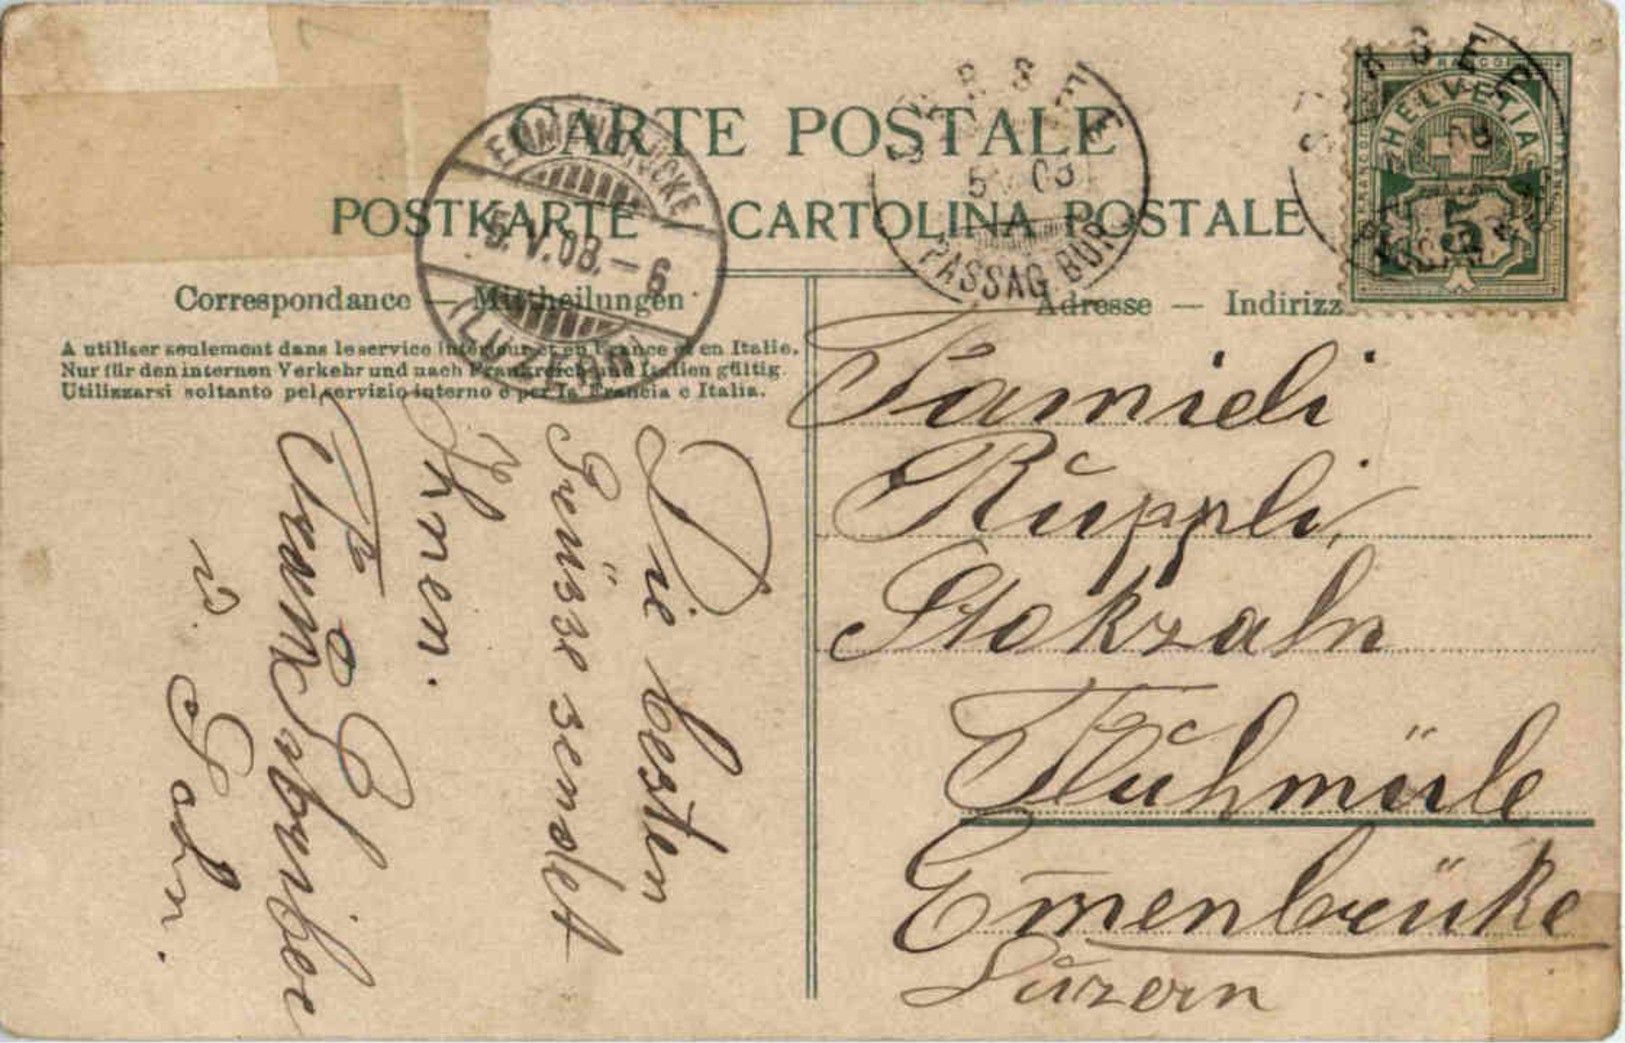 CARTE POSTALE
POSTKARTE CARTOLINA POSTALE
Correspondance — Mittheilungen
Adresse — Indirizz
A utiliser seulement dans le service intérieur et en France et en Italie.
Nur für den internen Verkehr und nach Frankreich und Italien gültig.
Utilizzarsi soltanto pel servizio interno e per la Francia e Italia.
EMMENBRÜCKE
5.V.08.-6
(LUZERN)
SURSEE
5 V 08
PASSAG BUR
SURSEE
FRANCO
HELVETIA
5
Die besten
Grüsse sendet
Ihnen.
Frau
u. Sohn.
Famili
Rüppli,
Stokzaln
Flühmüle
Emenbrüke
Luzern